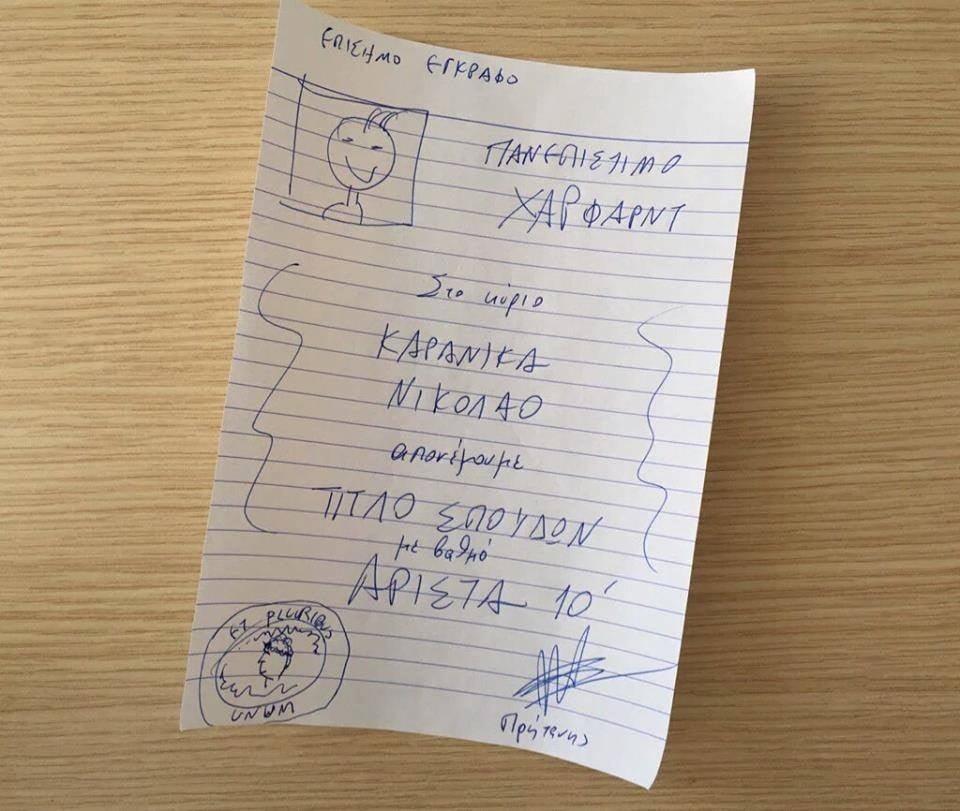 ΕΠΙΣΗΜΟ ΕΓΚΡΑΦΟ
ΠΑΝΕΠΙΣΙΜΟ
ΧΑΡΦΑΡΝΤ
Στο κύριο
ΚΑΡΑΝΙΚΑ
ΝΙΚΟΛΑΟ
απονέμουμε
ΤΙΤΛΟ ΣΠΟΥΔΩΝ
με βαθμό
ΑΡΙΣΤΑ 10'
ET PLURIBUS
UNUM
Πρήτανης